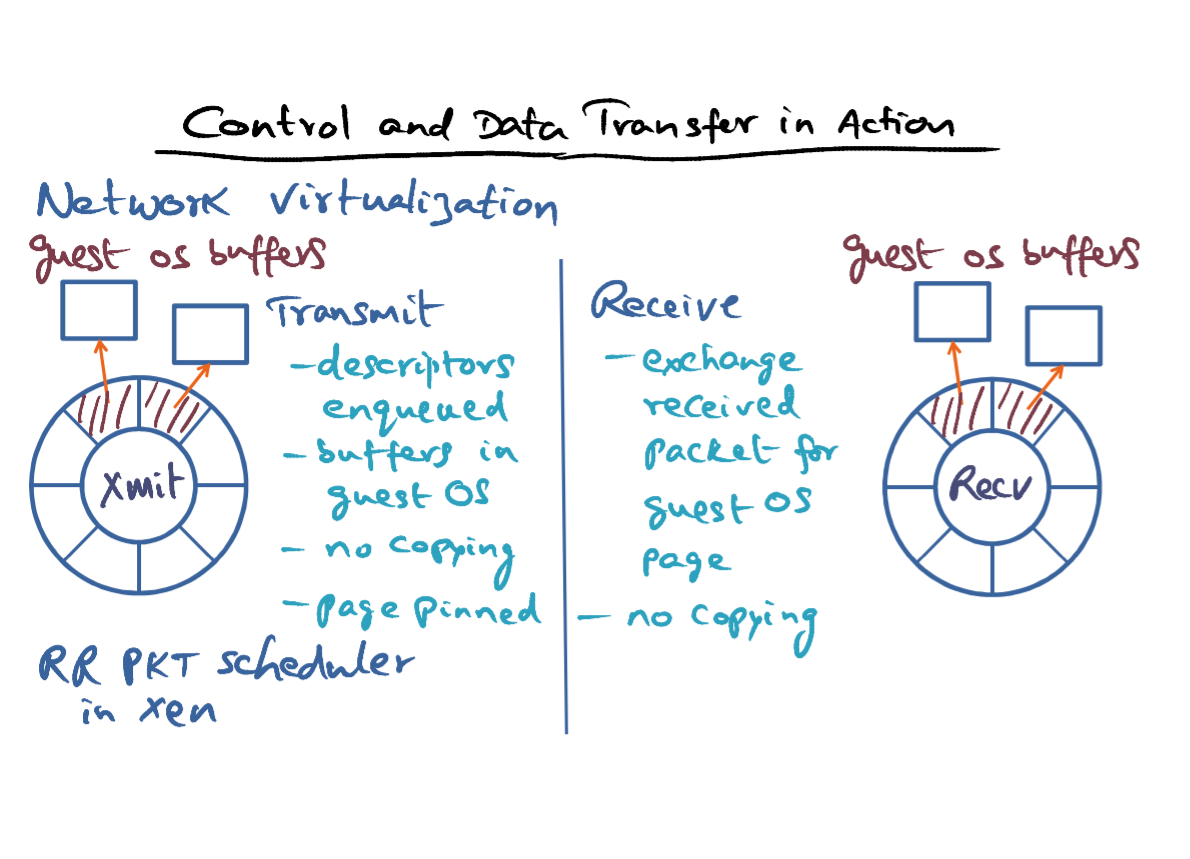 Control and Data Transfer in Action
Network Virtualization
guest os buffers
Xmit
Transmit
– descriptors
enqueued
– buffers in
guest OS
– no copying
– page pinned
RR PKT scheduler
in xen
Receive
– exchange
received
packet for
guest OS
page
– no copying
guest os buffers
Recv